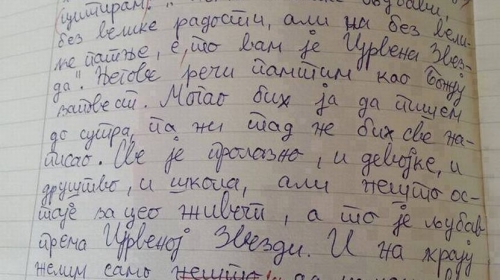 цитирам, " љубави,
без велике радости, али на без вели-
ке патње, е то вам је Црвена Звез-
да". Његове речи памтим као Божју
заповест. Могао бих ја да пишем
до сутра, па ни тад не бих све на-
писао. Све је пролазно, и девојке, и
друштво, и школа, али нешто ос-
таје за цео живот, а то је љубав
према Црвеној Звезди. И на крају
желим само нешто да